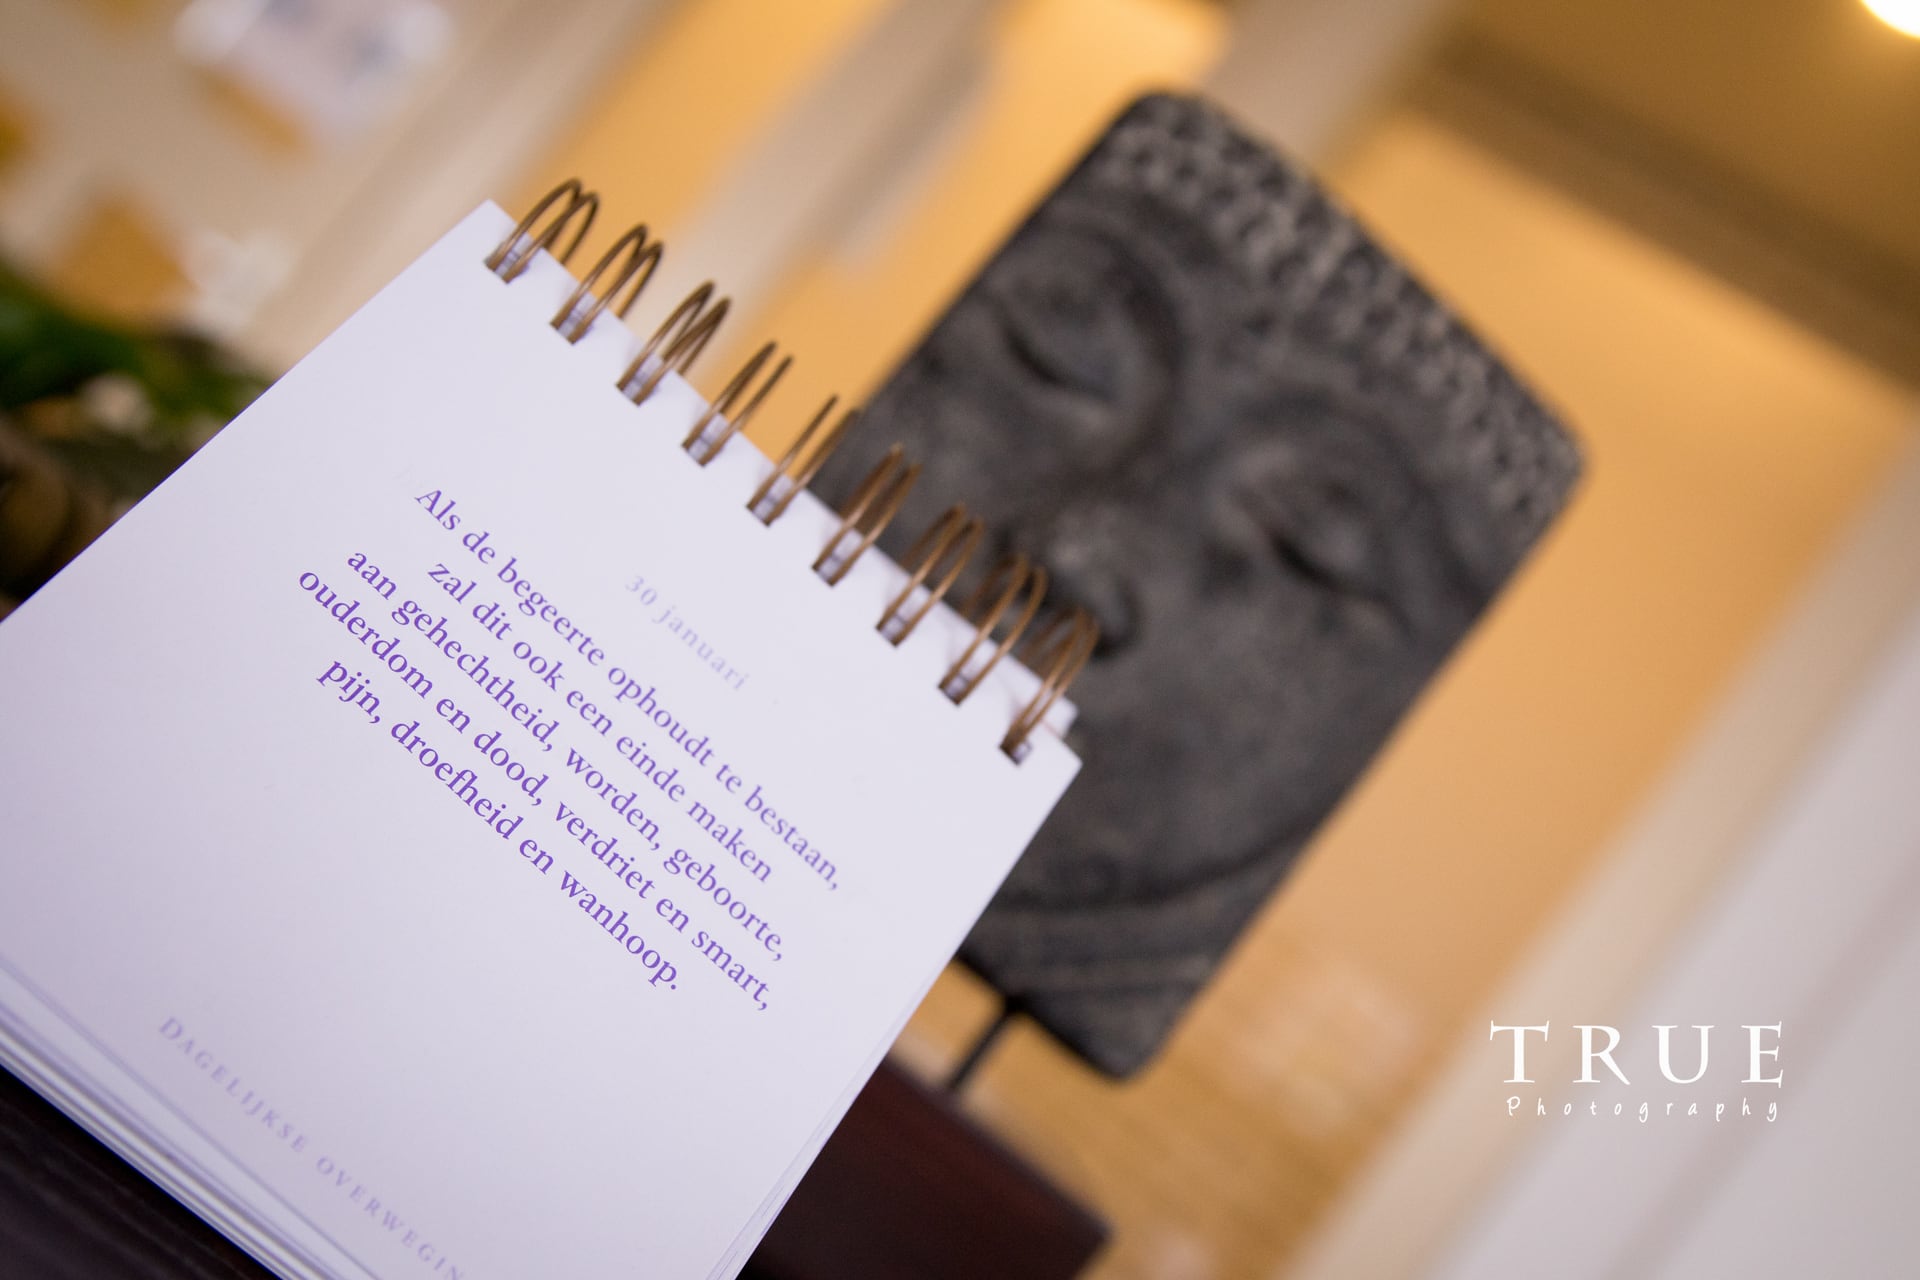 30 januari
Als de begeerte ophoudt te bestaan,
zal dit ook een einde maken
aan gehechtheid, worden, geboorte,
ouderdom en dood, verdriet en smart,
pijn, droefheid en wanhoop.
DAGELIJKSE OVERWEGIN
TRUE
Photography